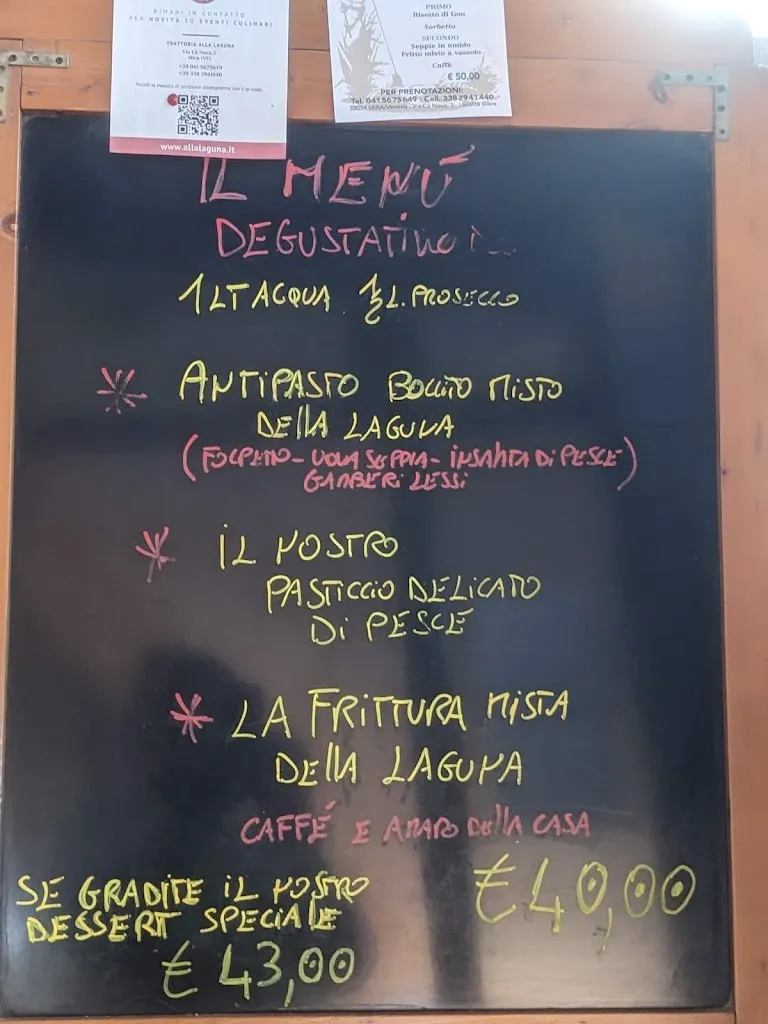 RIMANI IN CONTATTO
PER NOVITÀ ED EVENTI CULINARI
TRATTORIA ALLA LAGUNA
Via Cà Nova,7
Mira (VE)
+39 041 5675649
+39 338 2941440
www.allalaguna.it
PRIMO
Risotto di Goo
Sorbetto
SECONDO
Seppie in umido
Fritto misto a vassoio
Caffè
€ 50,00
PER PRENOTAZIONE:
Tel. 0415675649 - Cell. 3382941440
IL MENÚ
DEGUSTATIVO
1 LT ACQUA ½ L. PROSECCO
* ANTIPASTO BOLLITO MISTO
DELLA LAGUNA
(FOLPETTO - UOVA SEPPIA - INSALATA DI PESCE
GAMBERI LESSI)
* IL NOSTRO
PASTICCIO DELICATO
DI PESCE
* LA FRITTURA MISTA
DELLA LAGUNA
CAFFÉ E AMARO DELLA CASA
€ 40,00
SE GRADITE IL NOSTRO
DESSERT SPECIALE
€ 43,00